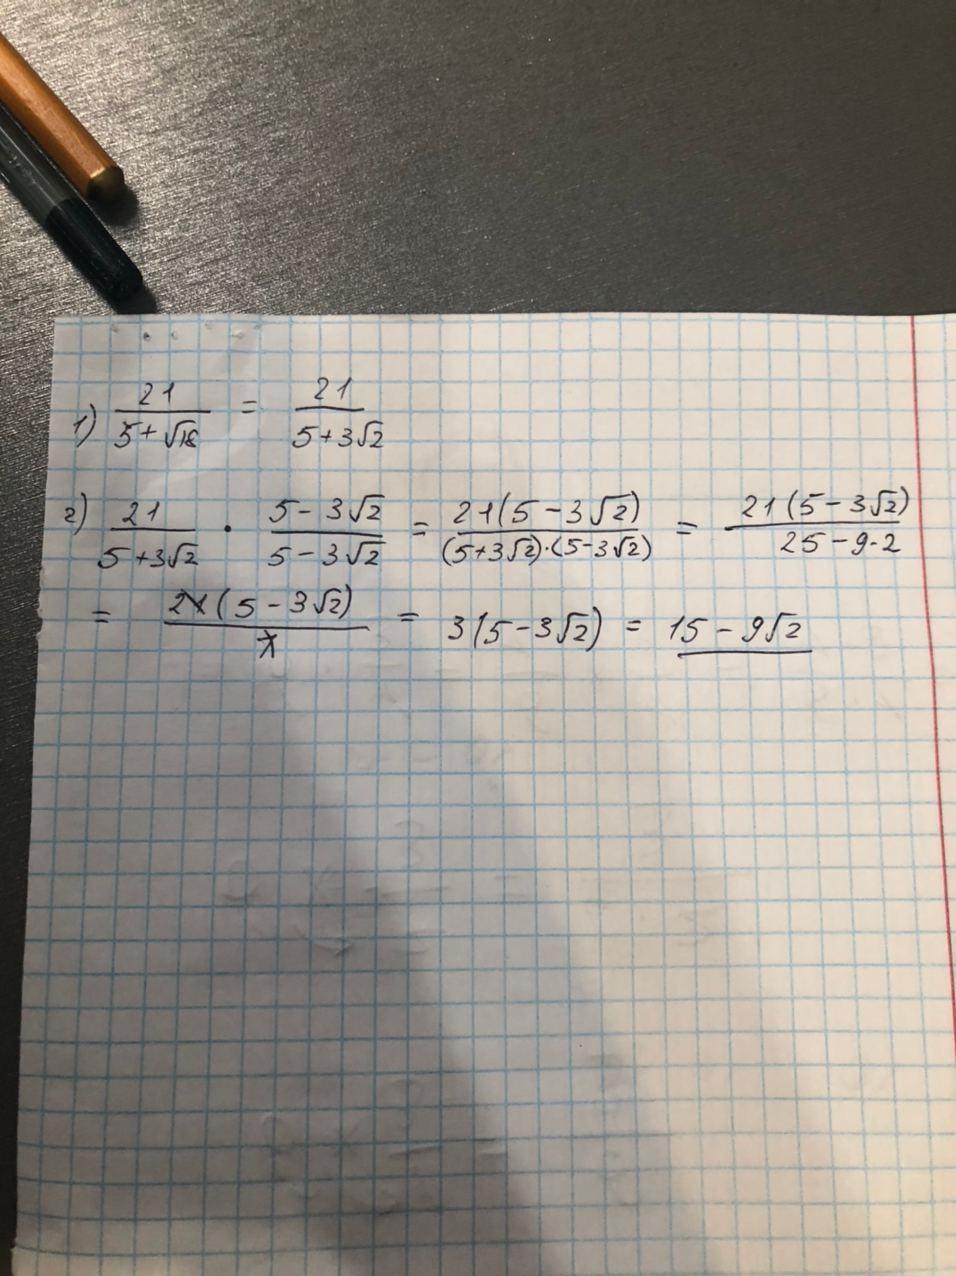 1) 21/(5+√18) = 21/(5+3√2)
2) 21/(5+3√2) · (5-3√2)/(5-3√2) = 21(5-3√2)/((5+3√2)·(5-3√2)) = 21(5-3√2)/(25-9·2)
= 21(5-3√2)/7 = 3(5-3√2) = 15-9√2